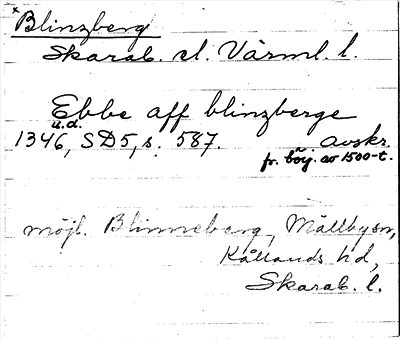 *Blinzberg
Skarab. el. Värml. l.
Ebbe aff blinzberge
u.d.
1346, SD5, s. 587. Avskr.
fr. börj. av 1500-t.
möjl. Blinneberg, Mällbysn,
Kållands hd,
Skarab. l.